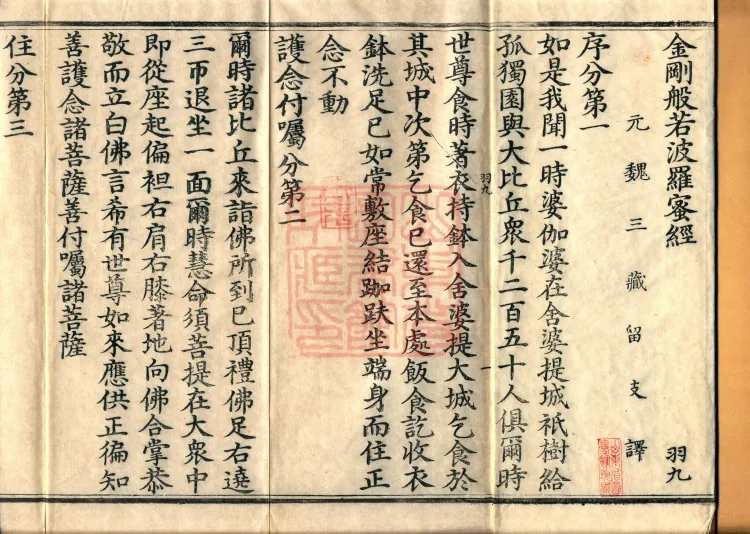 金剛般若波羅蜜經 羽九
元魏三藏留支譯
序分第一
如是我聞一時婆伽婆在舍婆提城祇樹給
孤獨園與大比丘衆千二百五十人俱爾時
世尊食時著衣持鉢入舍婆提大城乞食於
羽九 一
其城中次第乞食已還至本處飯食訖收衣
鉢洗足已如常敷座結跏趺坐端身而住正
念不動
護念付囑分第二
爾時諸比丘來詣佛所到已頂禮佛足右遶
三帀退坐一面爾時慧命須菩提在大衆中
即從座起偏袒右肩右膝著地向佛合掌恭
敬而立白佛言希有世尊如來應供正徧知
善護念諸菩薩善付囑諸菩薩
住分第三